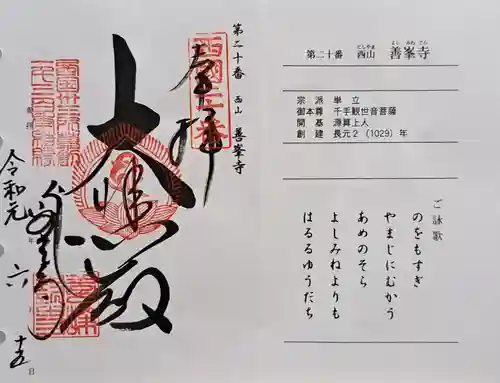 第二十番 西山 善峯寺
にしやま よしみねでら
宗派 単立
御本尊 千手観世音菩薩
開基 源算上人
創建 長元2（1029）年
ご詠歌
のをもすぎ
やまじにむかう
あめのそら
よしみねよりも
はるるゆうだち
第二十番 西山 善峯寺
西国二十番
奉拝
大悲殿
令和元年
六
十五日